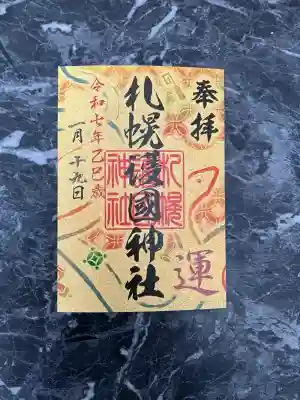 奉拝
札幌護國神社
札幌
護國
神社
令和七年乙巳歳
一月一日
運